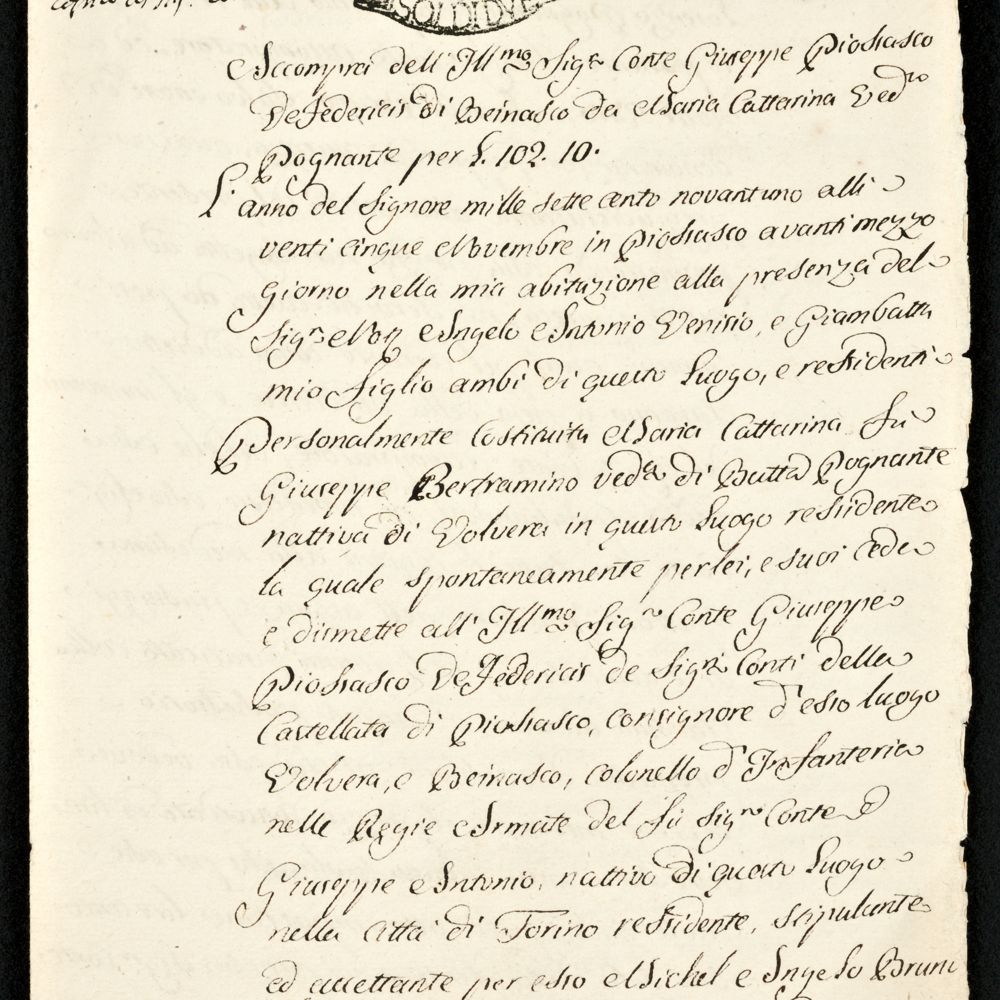 SOLDI DVE
Accompra dell'Ill.mo Sig.r Conte Giuseppe Piossasco
DeFedericis di Beinasco da Maria Cattarina Ved.
Pognante per £. 102. 10.
L'anno del Signore mille sette cento novantuno alli
venti cinque Novembre in Piossasco avanti mezzo
Giorno nella mia abitazione alla presenza del
Sig.r Not. Angelo Antonio Venisio, e Giambatta
mio figlio ambi di questo Luogo, e ressidenti
Personalmente Costituita Maria Cattarina fù
Giuseppe Bertramino ved.a di Batta Pognante
nattiva di Volvera in questo Luogo ressidente
la quale spontaneamente per lei, e suoi cede
e dimette all'Ill.mo Sig.r Conte Giuseppe
Piossasco DeFedericis de Sig.ri Conti della
Castellata di Piossasco, consignore d'esso luogo
Volvera, e Beinasco, colonello d'Infanteria
nelle Reggie Armate del fù Sig.r Conte
Giuseppe Antonio, nattivo di questo Luogo
nella città di Torino ressidente, stipulante
ed accettante per esso Michel Angelo Bruni